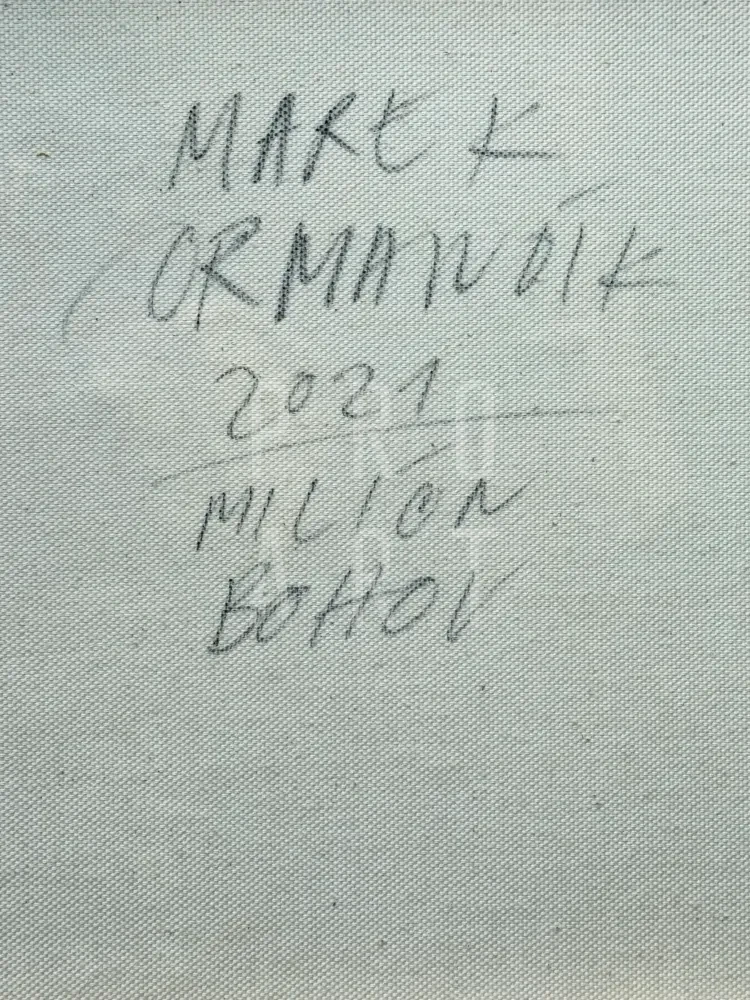 MAREK
ORMANDÍK
2021
MILIÓN
BOHOV
PRO
ART